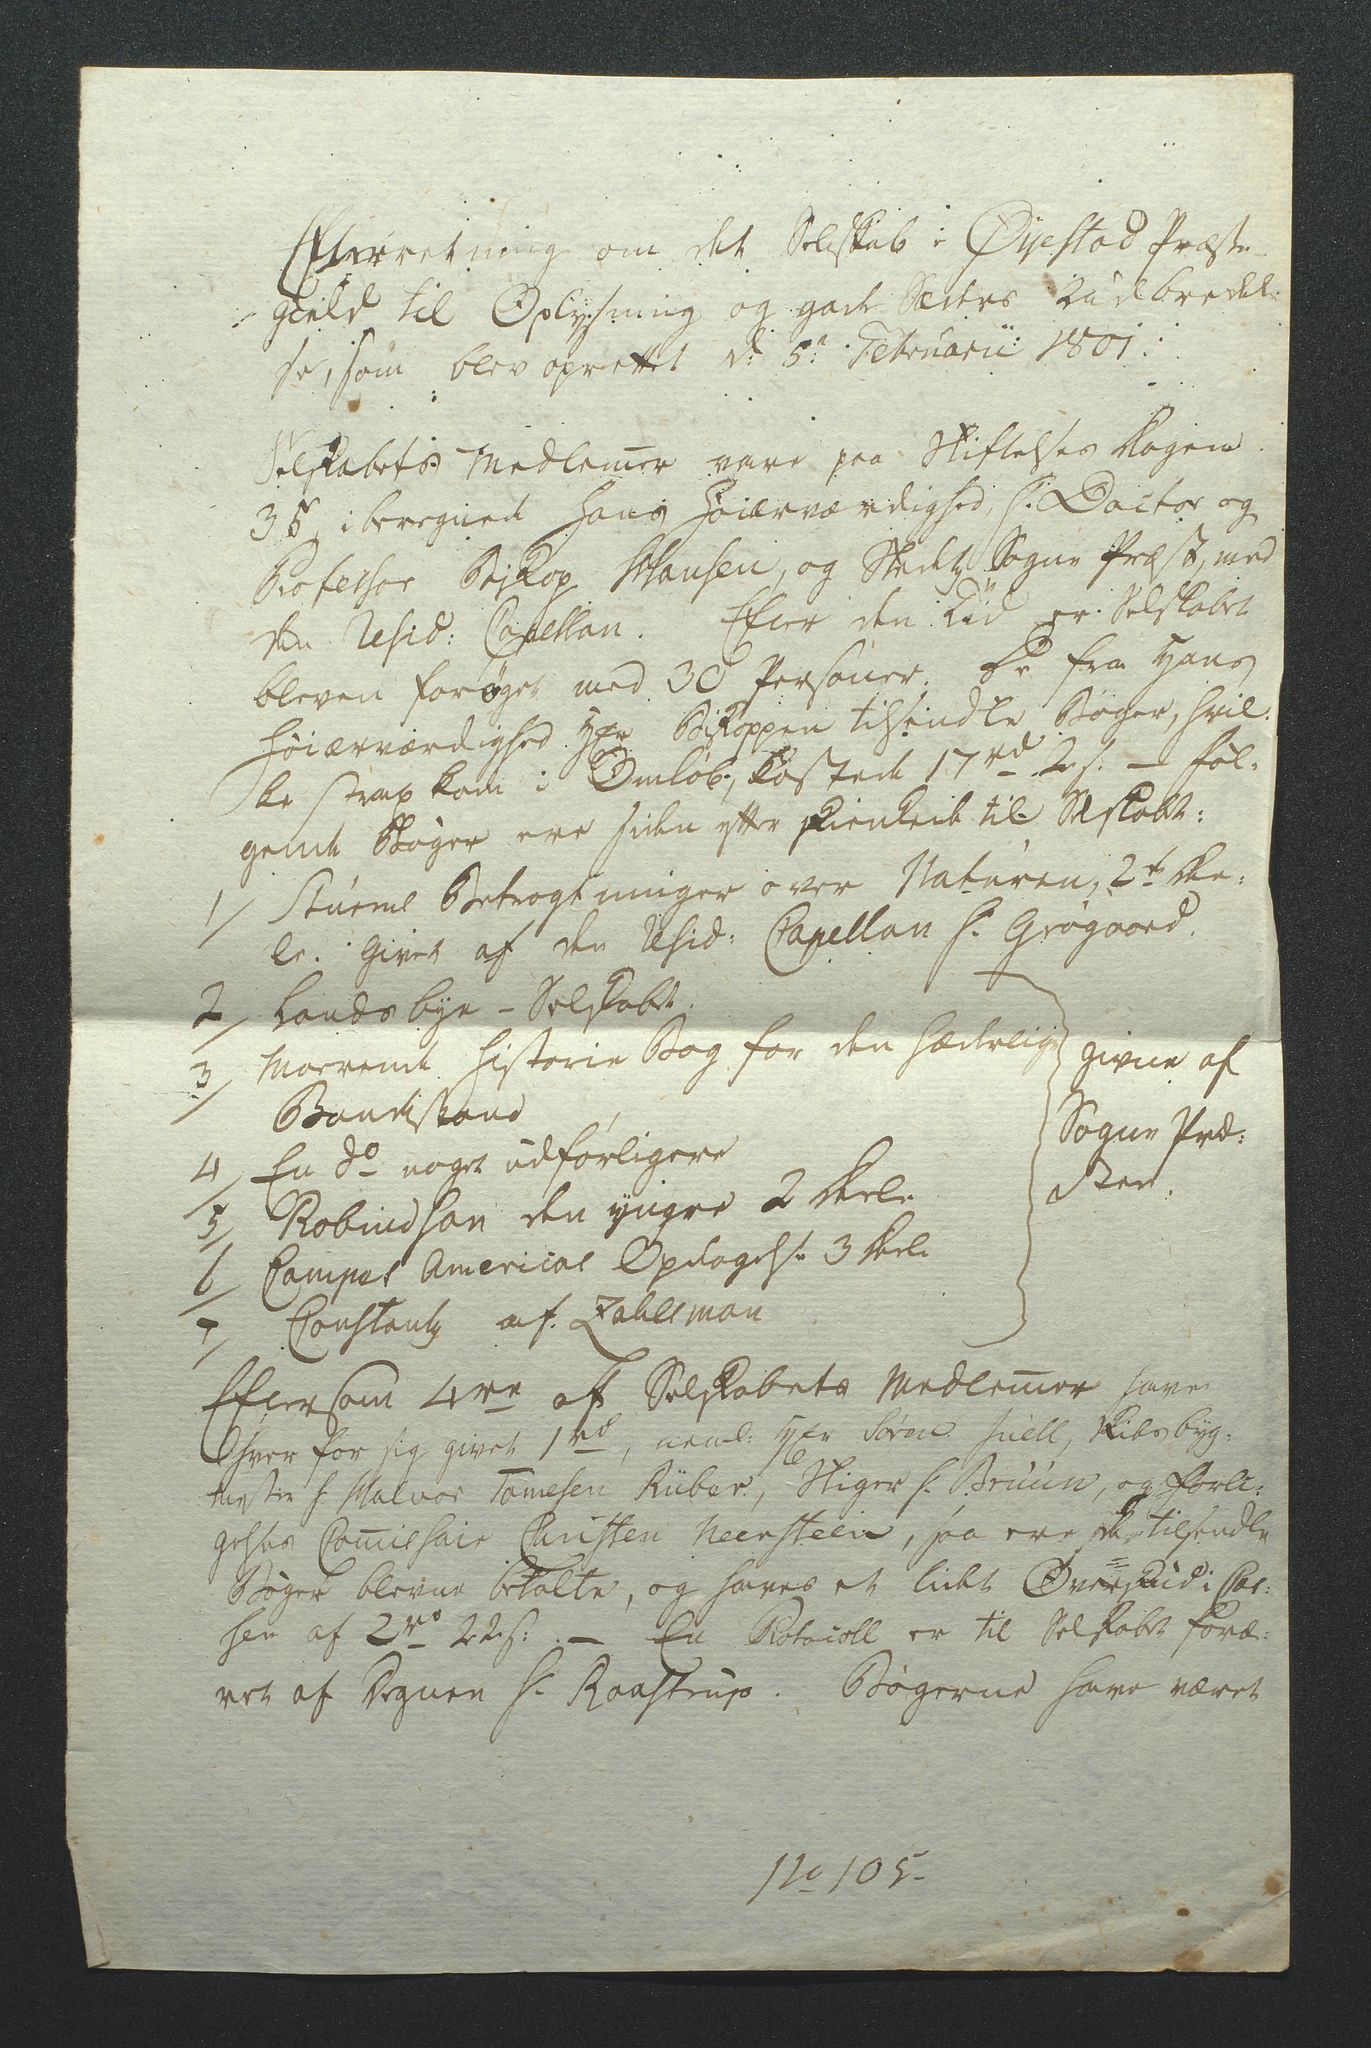 Efterretning om det Selskab i Øyestad Præste
Gield til Oplysning og gode Sæders Udbredel:
se, som blev oprettet d: 5te Februarii 1801.
Selskabets Medlemer vare paa Stiftelses Dagen
35, iberegnede Hans Høiærværdighed, H. Doctor og
Professor Biskop Hansen, og Stedets Sogne Præst, med
den Resid: Capellan. Efter den Tiid er Selskabet
bleven forøget med 30 Personer. De fra Hans
Høiærværdighed Hr Biskoppen tilsendte Bøger, hvil:
ke strax kom i Omløb, kostede 17 rd 2 s. – Føl:
gende Bøger ere siden efter skienkede til Selskabet:
1/ Sturms Betragtninger over Naturen, 2de De:
le. Givet af den Resid: Capellan H. Grøgaard.
2/ Landsbye-Selskabet.
3/ Moerende Historie Bog for den hæderlige
Bondestand
4/ En do noget udførligere
5/ Robindson den yngre 2 Dele
6/ Campes Americas Opdagelse 3 Dele
7/ Constants af Zahlsman
givne af
Sogne Præ:
sten.
Eftersom 4re af Selskabets Medlemer have
hver for sig givet 1 rd, neml: Hr Søren Juell, Skibsbyg:
mester H. Halvor Tomesen Rüber, H. Bruun, og Forli:
gelses Comissair Christen Neersteen, saa ere de tilsendte
Bøger blevne betalte, og haves et lidet Overskud i Cas:
sen af 2 rd 22 s: – En Protocoll er til Selskabet foræ:
ret af Degnen H. Raastrup. Bøgerne have været
No 105.